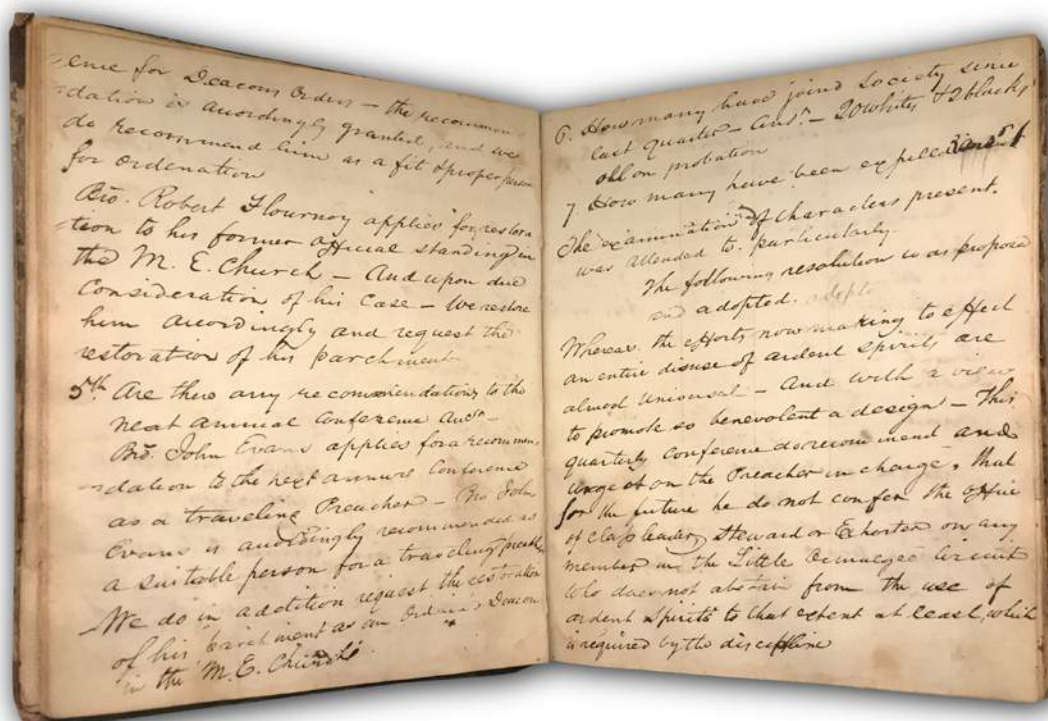 ence for Deacons Orders – the recommen-
dation is accordingly granted, and we
do recommend him as a fit & proper person
for ordenation
Bro. Robert Flournoy applies for restora
tion to his former official standing in
the M. E. Church – And upon due
Consideration of his Case – We restore
him accordingly and request the
restoration of his parchment
5th Are there any recommendations to the
next annual Conference Ansr –
Bro. John Evans applies for a recommen-
-dation to the next annual Conference
as a traveling Preacher – Bro John
Evans is accordingly recommended as
a suitable person for a traveling preacher
We do in addition request the restoration
of his parchment as an Ordain'd Deacon
in the M. E. Church
6. How many have joined Society since
last quarter – Ansr – 20 whites & 2 blacks
all on probation
7 How many have been expelled Ansr 1
The examination of characters present.
was attended to particularly.
The following resolution was proposed
and adopted.
Whereas the efforts now making to effect
an entire disuse of ardent spirits are
almost Universal – And with a view
to promote so benevolent a design – This
quarterly conference do recommend and
urge it on the Preacher in charge, that
for the future he do not confer the office
of class leader, Steward or Exhorter on any
member in the Little Ocmulgee Circuit
who does not abstain from the use of
ardent spirits to that extent at least, which
is required by the discipline